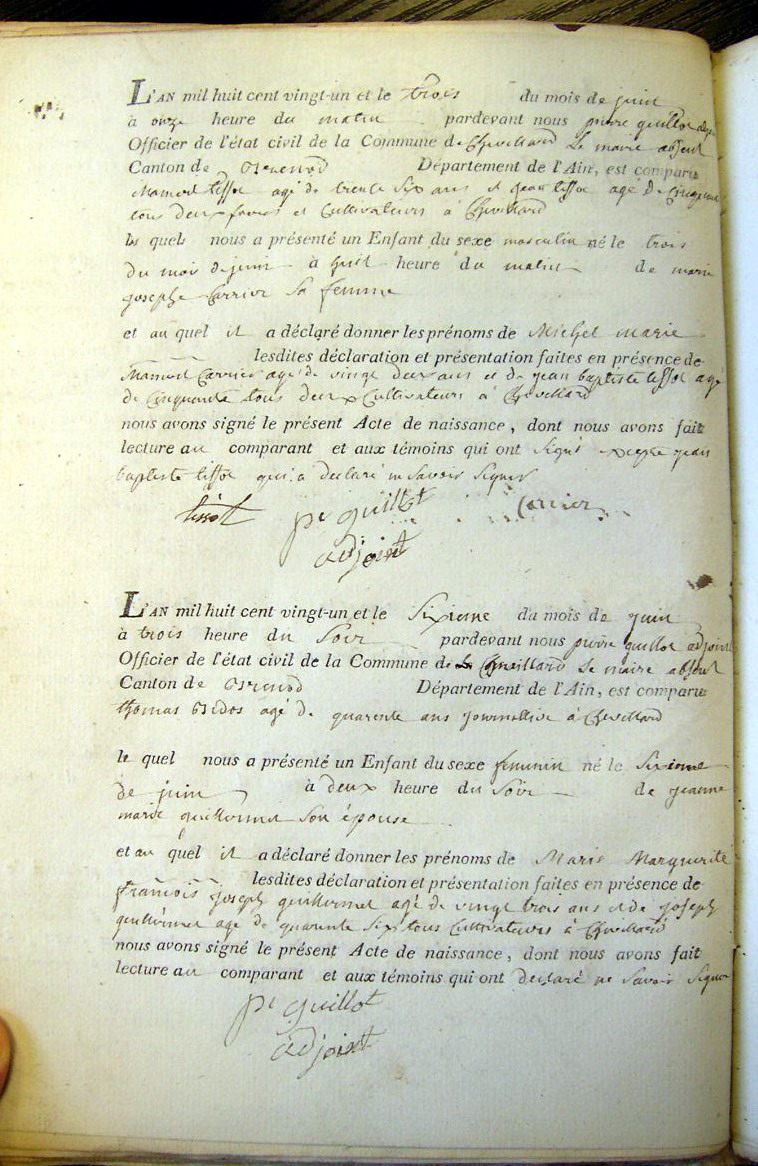 L'AN mil huit cent vingt-un et le trois du mois de juin
à onze heure du matin pardevant nous pierre guillot adjoint
Officier de l'état civil de la Commune de Chevillard le maire absent
Canton de Brenod Département de l'Ain, est comparu
Mamert tissot agé de trente six ans et jean tissot agé de Cinquante
tous deux freres et Cultivateurs à Chevillard
les quels nous a présenté un Enfant du sexe masculin né le trois
du mois de juin à huit heure du matin de marie
josephe Carrier Sa femme
et au quel il a déclaré donner les prénoms de Michel marie
lesdites déclaration et présentation faites en présence de
Mamert Carrier agé de vingt deux ans et de jean baptiste tissot agé
de Cinquante tous deux Cultivateurs à Chevillard
nous avons signé le présent Acte de naissance, dont nous avons fait
lecture au comparant et aux témoins qui ont signé excepté jean
baptiste tissot qui a declaré ne Savoir Signer
tissot pe guillot Carrier
adjoint
L'AN mil huit cent vingt-un et le Sixieme du mois de juin
à trois heure du Soir pardevant nous pierre guillot adjoint
Officier de l'état civil de la Commune de Chevillard le maire absent
Canton de Brenod Département de l'Ain, est comparu
thomas agé de quarente ans journallier à Chevillard
le quel nous a présenté un Enfant du sexe feminin né le Sixieme
de juin à deux heure du Soir de jeanne
marie guillermet Son épouse
et au quel il a déclaré donner les prénoms de Marie Marguerite
lesdites déclaration et présentation faites en présence de
francois joseph guillermet agé de vingt trois ans et de joseph
guillermet agé de quarente Six tous Cultivateurs à Chevillard
nous avons signé le présent Acte de naissance, dont nous avons fait
lecture au comparant et aux témoins qui ont declaré ne Savoir Signer
pe guillot
adjoint